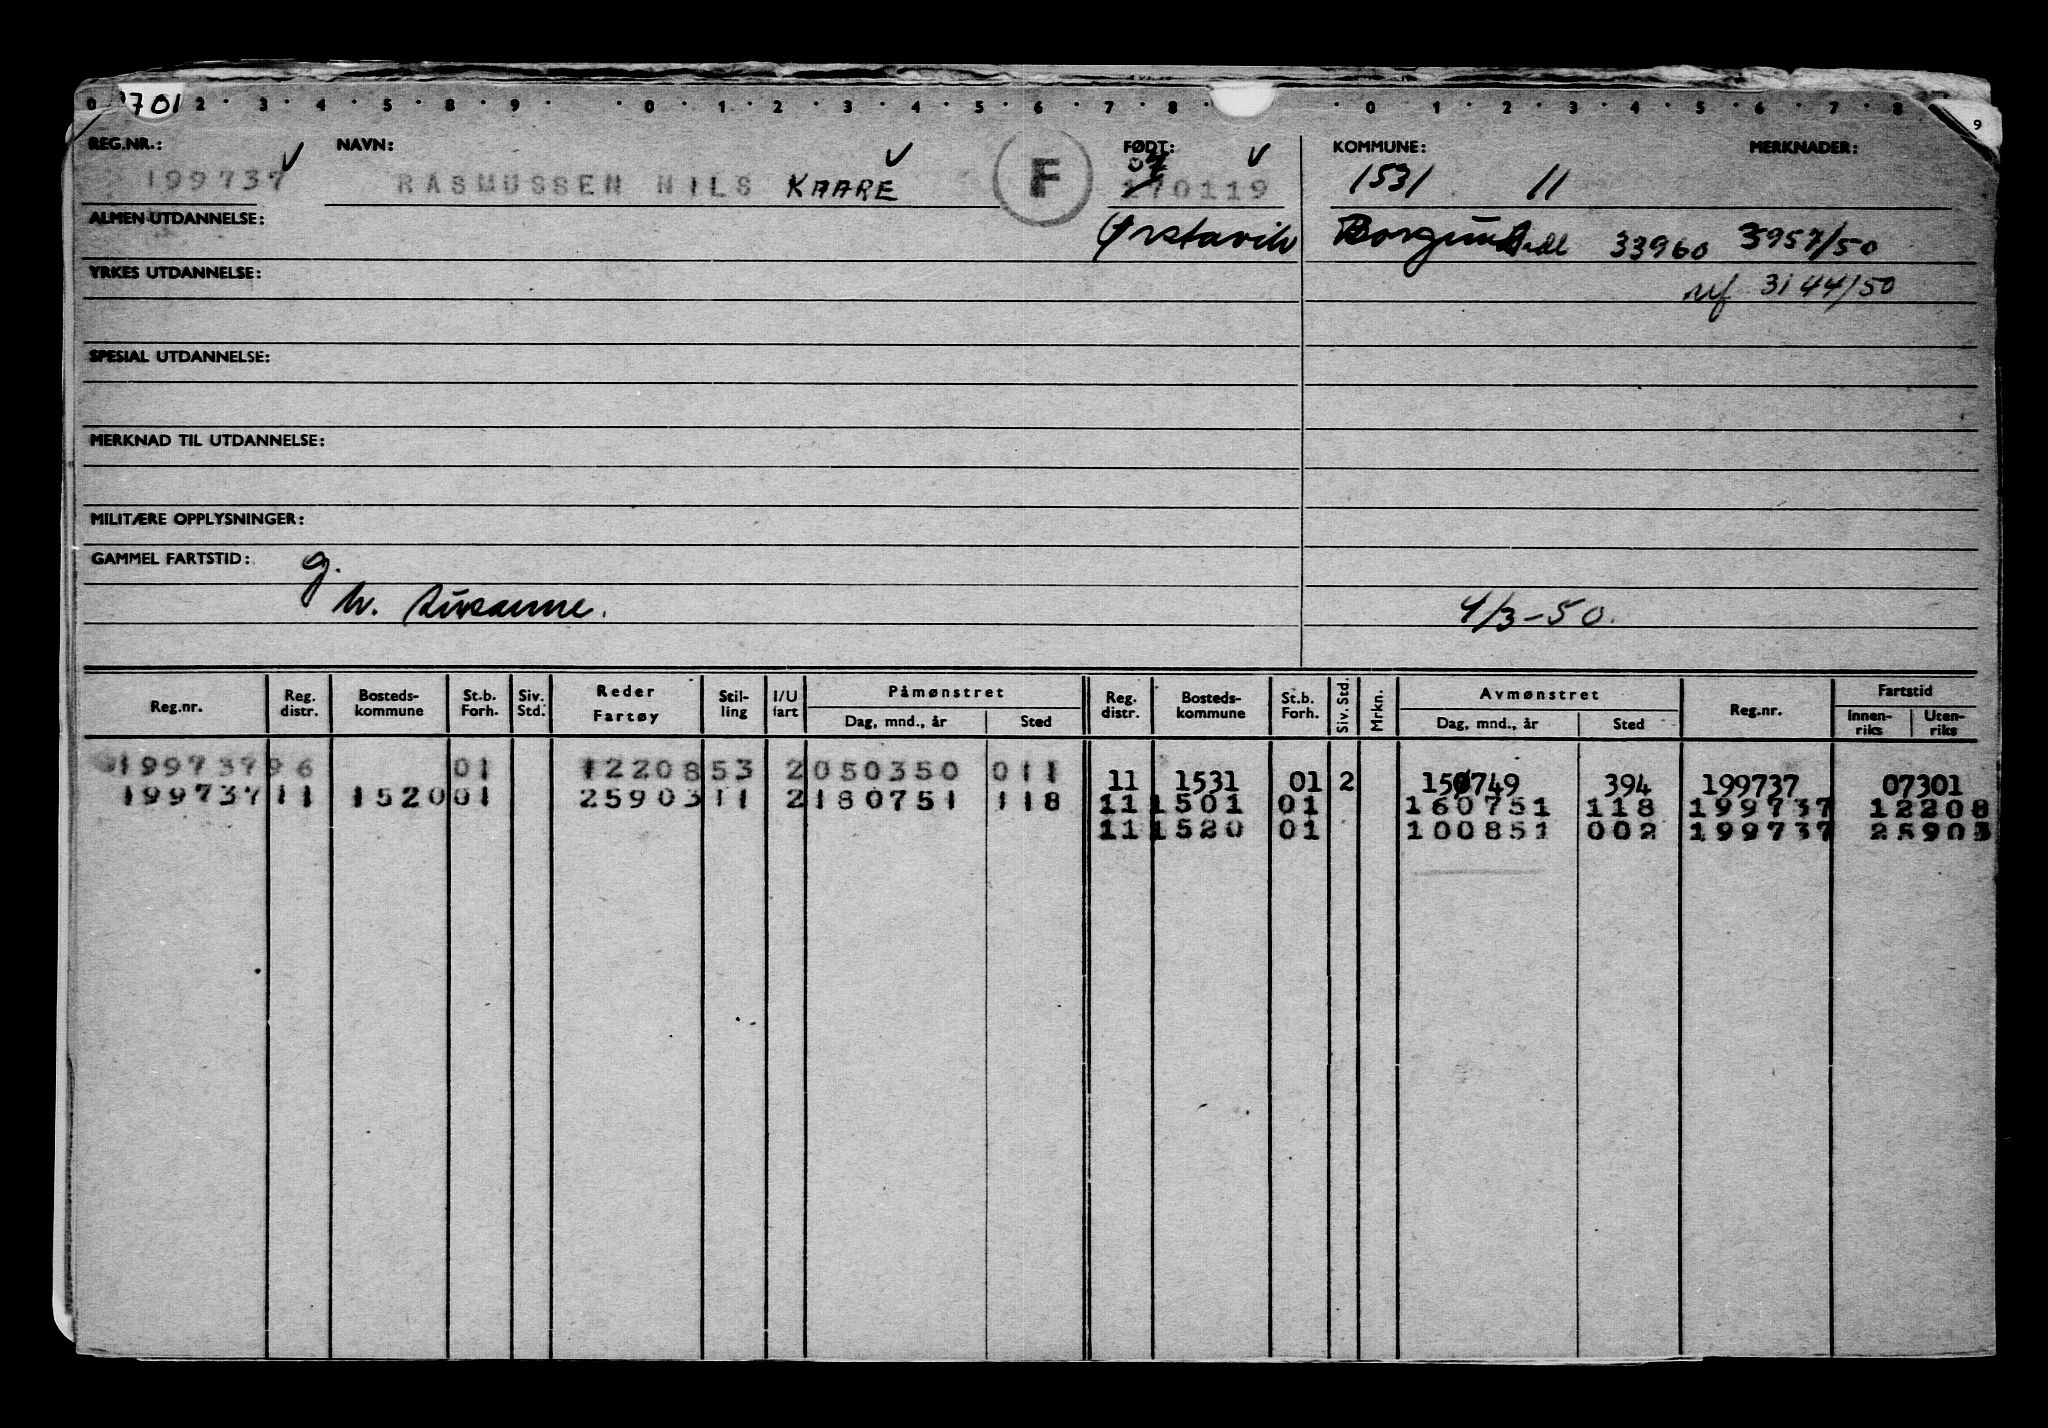 701 2 · 3 · 4 · 5 · 8 · 9 · · 0 · 1 · 2 · 3 · 4 · 5 · 6 · 7 · 8 · · 0 · 1 · 2 · 3 · 4 · 5 · 6 · 7 · 8 9
REG.NR.: NAVN: FØDT: KOMMUNE: MERKNADER:
199737 RASMUSSEN NILS KAARE F 170119 1531 11
ALMEN UTDANNELSE: Ørstavik Borgund 33960 3957/50
YRKES UTDANNELSE: 3144/50
SPESIAL UTDANNELSE:
MERKNAD TIL UTDANNELSE:
MILITÆRE OPPLYSNINGER:
GAMMEL FARTSTID: g.
h. Susanne. 4/3-50.
Reg.nr. Reg. distr. Bosteds-kommune St.b. Forh. Siv. Std. Reder Fartøy Stil-ling I/U fart Påmønstret Dag, mnd., år Sted Reg. distr. Bosteds-kommune St.b. Forh. Siv. Std. Mrkn. Avmønstret Dag, mnd., år Sted Reg.nr. Fartstid Innen-riks Uten-riks
199737 96 01 12208 53 2 050350 011 11 1531 01 2 150749 394 199737 07301
199737 11 1520 01 25903 11 2 180751 118 11 1501 01 160751 118 199737 12208
11 1520 01 100851 002 199737 25903